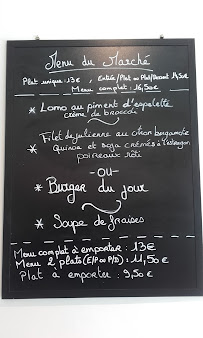 Menu du Marché
Plat unique : 13€, Entrée/Plat ou Plat/Dessert 14,50€
Menu complet : 16,50€
* Lomo au piment d'espelette
crème de brocoli
* Filet de julienne au citron bergamote
Quinoa et soja crémés à l'estragon
poireaux rôti
-OU-
* Burger du jour
* Soupe de fraises
Menu complet à emporter : 13€
Menu 2 plats (E/P ou P/D) : 11,50€
Plat à emporter : 9,50€